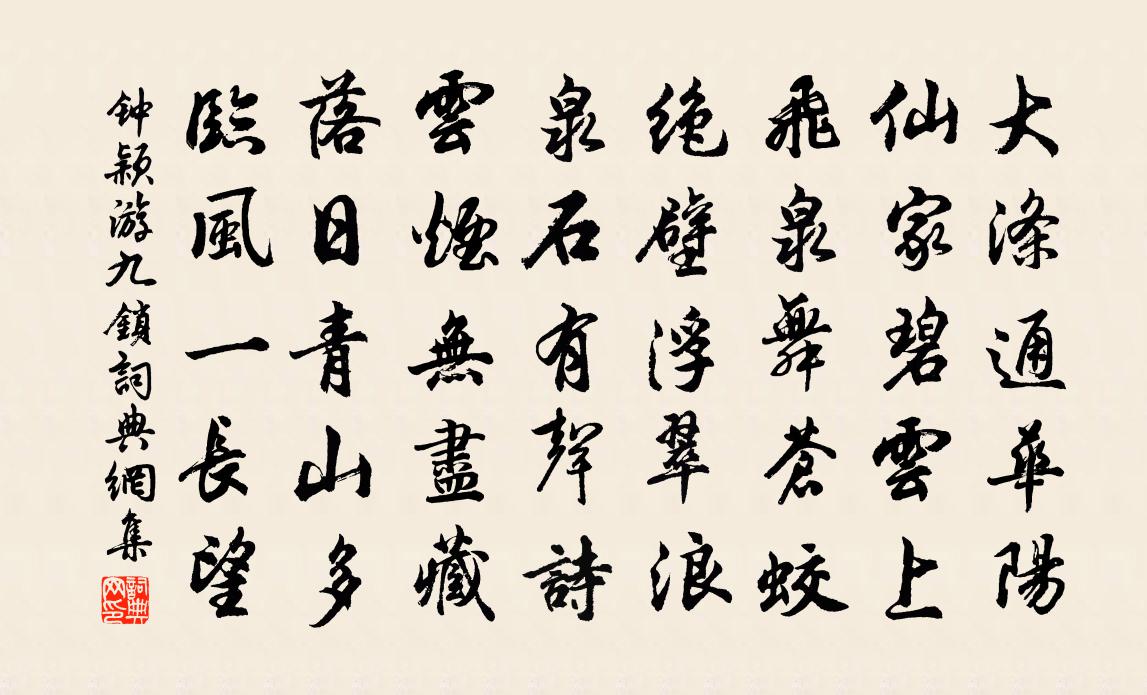 大滌通華陽
仙家碧雲上
飛泉舞蒼蛟
绝壁浮翠浪
泉石有聲詩
雲煙無盡藏
落日青山多
臨風一長望
钟颖游九鎖詞典網集
詞典網印